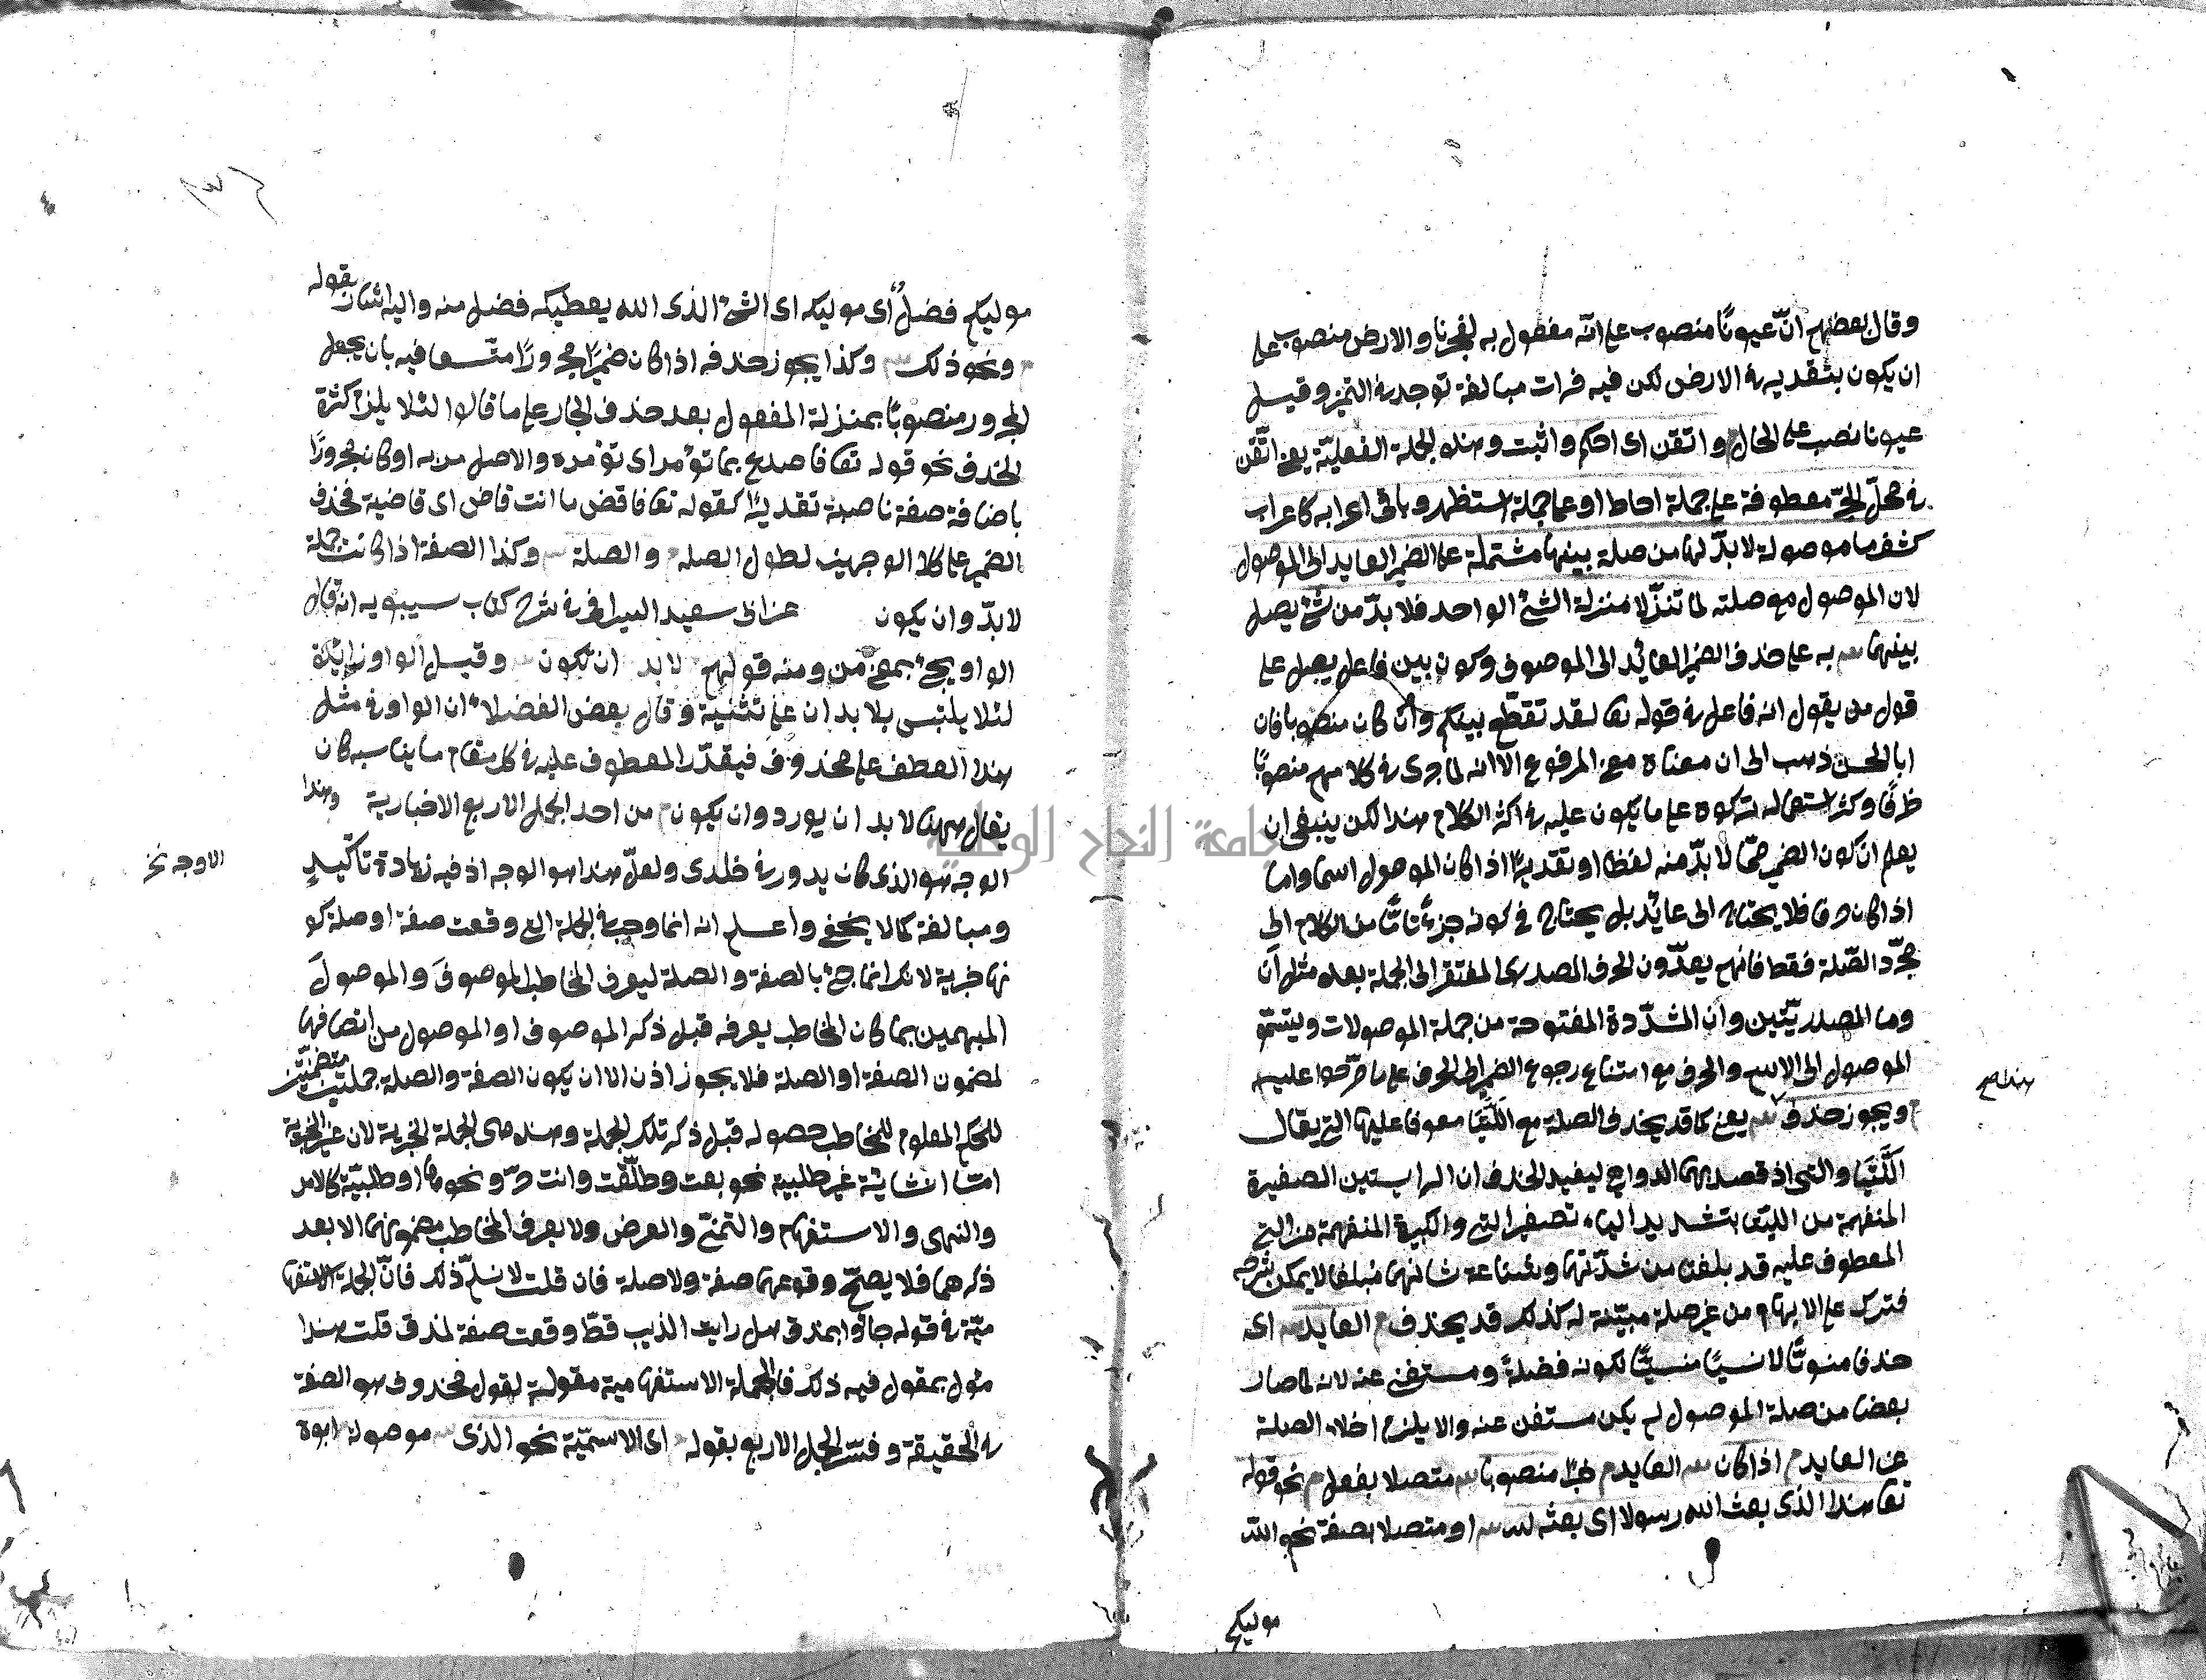 وقال بعضهم ان عيونا منصوب على انه مفعول به لفجرنا والارض منصوب على
ان يكون بتقديره في الارض لكن فيه فوات مبالغة توجد في التميز وقيل
عيونا نصب على الحال م واتقن اى احكم واثبت وهذه الجملة الفعلية يعنى اتقن
في محل الجر معطوفة على جملة احاط او على جملة استظهر وباقى اعرابه كاعراب
كشف ما موصولة لا بد لها من صلة بينها مشتملة على الضمير العايد الى الموصول
لان الموصول مع صلته لما تنزلا منزلة الشئ الواحد فلا بد من شئ يصل
بينهما به على حذف الضمير العائد الى الموصوف وكون بين فاعل يصل على
قول من يقول انه فاعل في قوله تعا لقد تقطع بينكم وان كان منصوبا فان
ابا الحسن ذهب الى ان معناه معنى المرفوع الا انه لما جرى في كلامهم منصوبا
ظرفا وكثر استعماله تركوه على ما يكون عليه في اكثر الكلام هذا لكن ينبغى ان
يعلم ان كون الضمير مما لا بد منه لفظا او تقديرا اذا كان الموصول اسما واما
اذا كان حرفا فلا يحتاج الى عائد بل يحتاج في كونه جزءا تاما من الكلام الى
مجرد الصلة فقط فانهم يعدون الحرف المصدرى المفتقر الى الجملة بعده مثل ان
وما المصدريتين وان المشددة المفتوحة من جملة الموصولات ويقسم
الموصول الى الاسم والحرف مع امتناع رجوع الضمير الى الحرف على ما صرحوا عليه
هذا صح
م ويجوز حذفه يعنى كما قد يحذف الصلة مع اللتيا معطوفا عليها التى يقال
اللتيا والتى اذ قصد بهما الدواهى ليفيد الحذف ان الداهيتين الصغيرة
المنفهمة من اللتيا بتشديد الياء تصغير التى والكبيرة المنفهمة من التى
المعطوف عليه قد بلغتا من شدتهما وشناعة شانهما مبلغا لا يمكن شرحه
فترك على الابهام من غير صلة مبينة له كذلك قد يحذف م العايد اى
حذفا منويا لا نسيا منسيا لكونه فضلة ومستغنى عنه لانه لما صار
بعضا من صلة الموصول لم يكن مستغن عنه والا يلزم اخلاء الصلة
عن العايد م اذا كان العايد م ضميرا منصوبا متصلا بفعل م نحو قوله
تعا هذا الذى بعث الله رسولا اى بعثه الله او متصلا بصفة نحو الله
موليكم
موليكم فضل اى موليكه اى الشئ الذى الله يعطيكه فضل منه واليه اشار بقوله
م ونحو ذلك وكذا يجوز حذفه اذا كان ضميرا مجرورا متسعا فيه بان يجعل
المجرور منصوبا بمنزلة المفعول بعد حذف الجار على ما قالوا لئلا يلزم كثرة
الحذف نحو قوله تعا فاصدع بما تؤمر اى تؤمره والاصل به او كان مجرورا
باضافة صفة ناصبة تقديرا كقوله تعا فاقض ما انت قاض اى قاضيه فحذف
الضمير على كلا الوجهين لطول الصلة م والصلة وكذا الصفة اذا كانت جملة
لا بد وان يكون عن ابى سعيد السيرافى في شرح كتاب سيبويه انه قال
الواو يجئ بمعنى من ومنه قولهم لا بد ان تكون وقيل الواو زائدة
لئلا يلتبس بلا بد ان على تثنية وقال بعض الفضلاء ان الواو في مثل
هذا العطف على محذوف فيقدر المعطوف عليه في كل مقام ما يناسبه كان
يقال ههنا لا بد ان يورد وان يكون م من احد الجمل الاربع الاخبارية وهذا
الوجه هو الذى كان يدور في خلدى ولعل هذا هو الوجه اذ فيه زيادة تأكيد
الاوجه نخ
ومبالغة كما لا يخفى واعلم انه انما وجب في الجملة التى وقعت صفة او صلة كو
نها خبرية لانك انما جئ بالصفة والصلة ليعرف المخاطب الموصوف والموصول
المبهمين بما كان المخاطب يعرفه قبل ذكر الموصوف او الموصول من اتصافهما
لمضمون الصفة او الصلة فلا يجوز اذن الا ان يكون الصفة والصلة جملتين متضمنتين
للحكم المعلوم للمخاطب حصوله قبل ذكر تلك الجملة وهذه هى الجملة الخبرية لان غير الخبرية
اما انشائية غير طلبية نحو بعت وطلقت وانت حر ونحوها او طلبية كالامر
والنهى والاستفهام والتمنى والعرض ولا يعرف المخاطب مضمونها الا بعد
ذكرهما فلا يصح وقوعهما صفة ولا صلة فان قلت لا نسلم ذلك فان الجملة الاستفها
مية في قوله جاؤا بمذق هل رايت الذيب قط وقعت صفة لمذق قلت هذا
مئول بمقول فيه ذلك فالجملة الاستفهامية مقولة لقول محذوف هو الصفة
في الحقيقة وفسر الجمل الاربع بقوله اى الاسمية نحو الذى موصولة ابوه
جامعة النجاح الوطنية